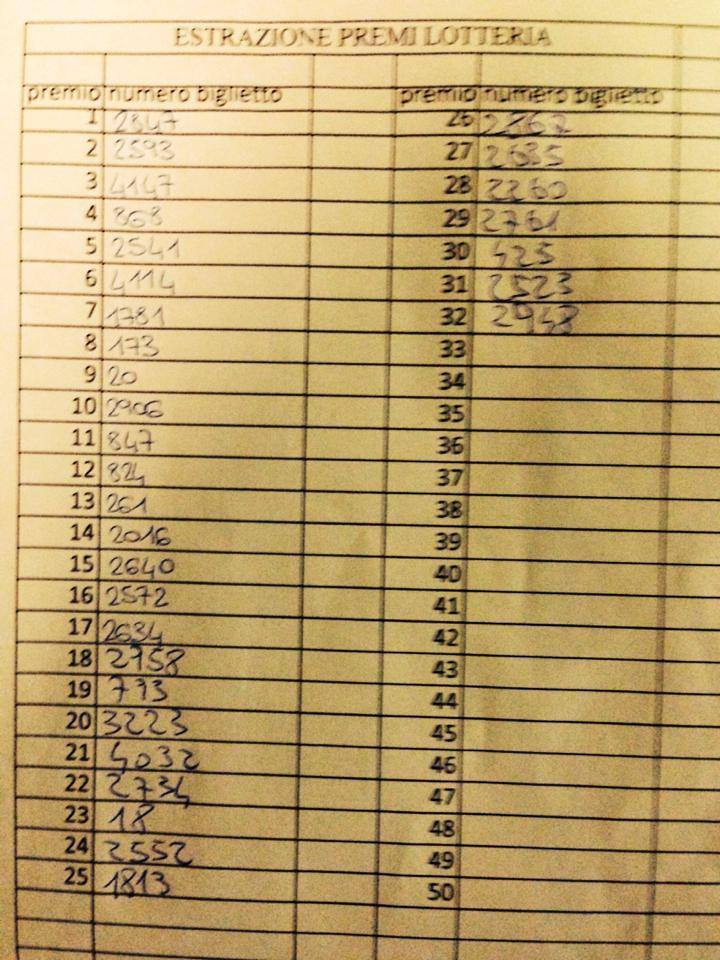 ESTRAZIONE PREMI LOTTERIA
premio numero biglietto premio numero biglietto
1 2347 26 2362
2 2593 27 2635
3 4147 28 2260
4 868 29 2761
5 2541 30 425
6 4114 31 2523
7 1781 32 2948
8 173 33
9 20 34
10 2906 35
11 847 36
12 824 37
13 261 38
14 2016 39
15 2640 40
16 2572 41
17 2634 42
18 2958 43
19 773 44
20 3223 45
21 4032 46
22 2734 47
23 18 48
24 2552 49
25 1813 50